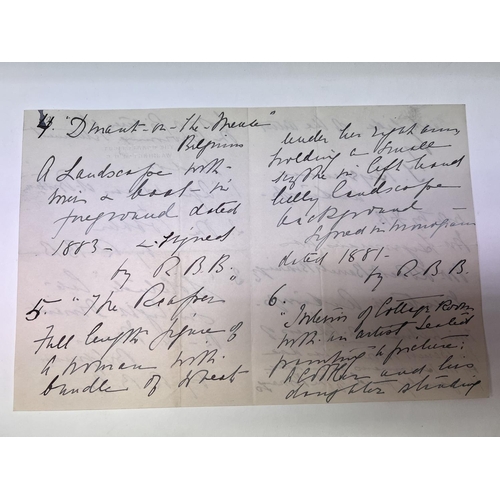 4. "Dinant-on-The-Meuse"
Belgium
A Landscape with
river & boat in
foreground dated
1883 - & signed
by R. B. B."
5. "The Reaper
Full length figure of
a woman with
bundle of wheat
under her right arm
holding a small
scythe in left hand
hilly landscape
background -
Signed in monogram
dated 1881 -
by R. B. B.
6.
"Interior of Cottage Room
with an artist seated
painting a picture:
and his
daughter standing